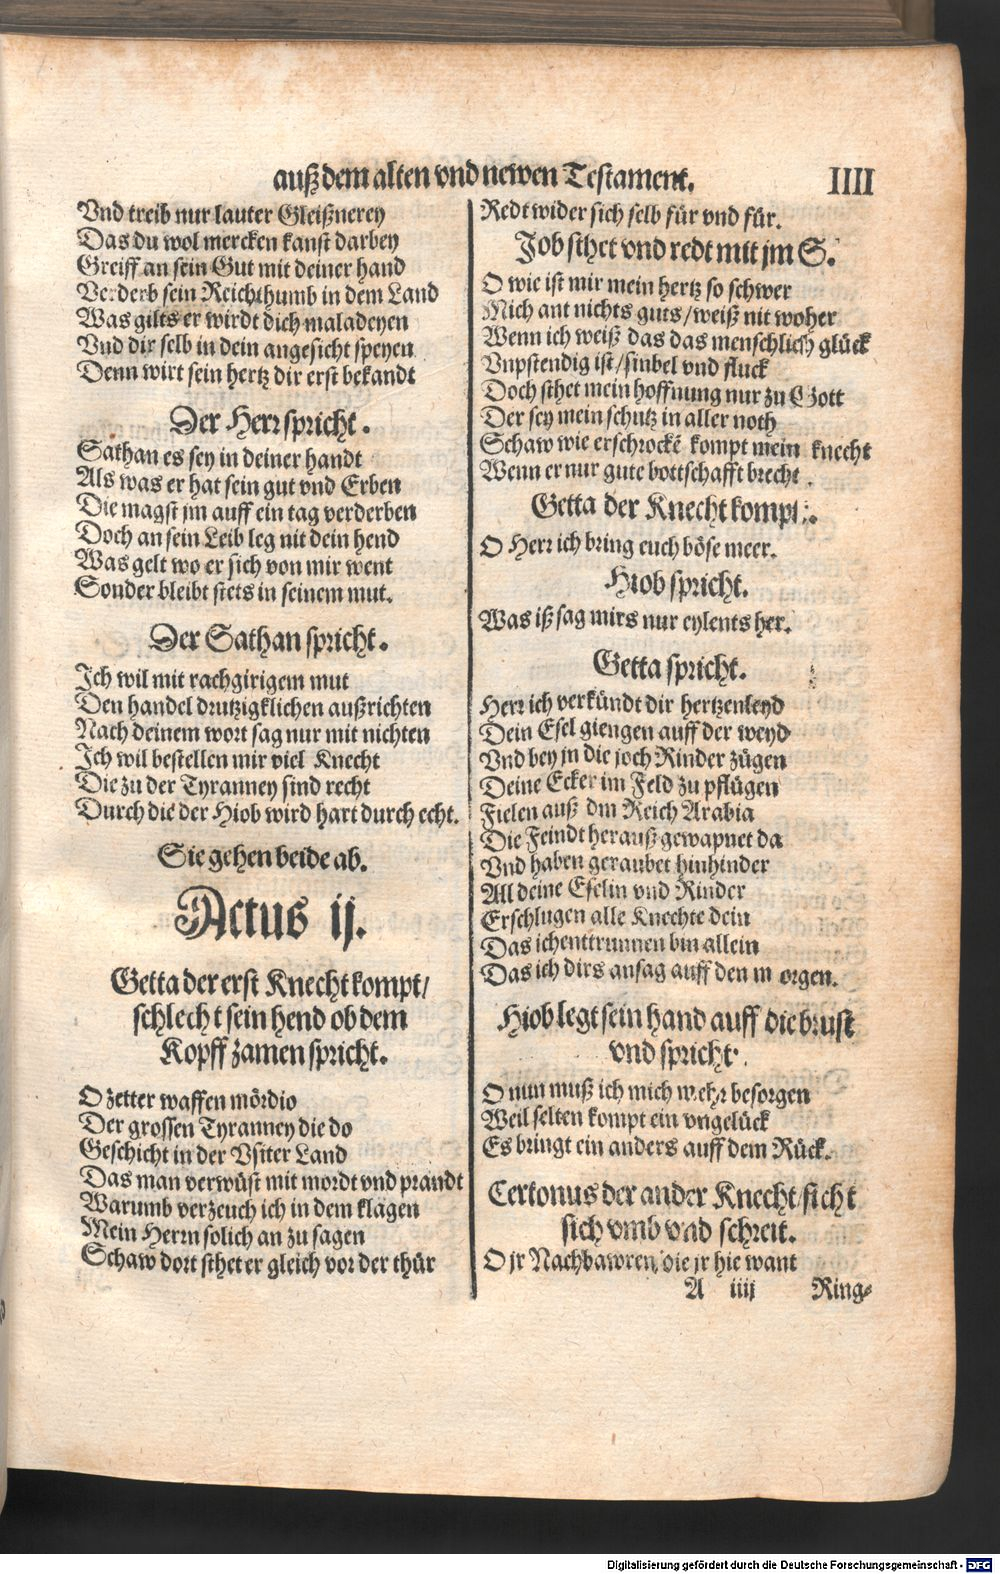 auß dem alten vnd newen Testament. IIII
Vnd treib nur lauter Gleißnerey
Das du wol mercken kanst darbey
Greiff an sein Gut mit deiner hand
Verderb sein Reichthumb in dem Land
Was gilts er wirdt dich maladeyen
Vnd dir selb in dein angesicht speyen
Denn wirt sein hertz dir erst bekandt
Der Herr spricht.
Sathan es sey in deiner handt
Als was er hat sein gut vnd Erben
Die magst jm auff ein tag verderben
Doch an sein Leib leg nit dein hend
Was gelt wo er sich von mir went
Sonder bleibt stets in seinem mut.
Der Sathan spricht.
Ich wil mit rachgirigem mut
Den handel drutzigklichen außrichten
Nach deinem wort sag nur mit nichten
Ich wil bestellen mir viel Knecht
Die zu der Tyranney sind recht
Durch die der Hiob wird hart durch echt.
Sie gehen beide ab.
Actus ij.
Getta der erst Knecht kompt/
schlecht sein hend ob dem
Kopff zamen spricht.
O zetter waffen mördio
Der grossen Tyranney die do
Geschicht in der Vsiter Land
Das man verwüst mit mordt vnd prandt
Warumb verzeuch ich in dem klagen
Mein Herrn solich an zu sagen
Schaw dort sthet er gleich vor der thür
Redt wider sich selb für vnd für.
Job sthet vnd redt mit jm S.
O wie ist mir mein hertz so schwer
Mich ant nichts guts/weiß nit woher
Wenn ich weiß das das menschlich glück
Vnpstendig ist/sinbel vnd fluck
Doch sthet mein hoffnung nur zu Gott
Der sey mein schutz in aller noth
Schaw wie erschrockē kompt mein knecht
Wenn er nur gute bottschafft brecht.
Getta der Knecht kompt.
O Herr ich bring euch böse meer.
Hiob spricht.
Was iß sag mirs nur eylents her.
Getta spricht.
Herr ich verkündt dir hertzenleyd
Dein Esel giengen auff der weyd
Vnd bey jn die joch Rinder zügen
Deine Ecker im Feld zu pflügen
Fielen auß dm Reich Arabia
Die Feindt herauß gewapnet da
Vnd haben geraubet hinhinder
All deine Eselin vnd Rinder
Erschlugen alle Knechte dein
Das ich enttrunnen bin allein
Das ich dirs ansag auff den morgen.
Hiob legt sein hand auff die brust
vnd spricht.
O nun muß ich mich mehr besorgen
Weil selten kompt ein vngelück
Es bringt ein anders auff dem Rück.
Certonus der ander Knecht sicht
sich vmb vnd schreit.
O jr Nachbawren/die jr hie want
A iiij Ring⸗
Digitalisierung gefördert durch die Deutsche Forschungsgemeinschaft - DFG